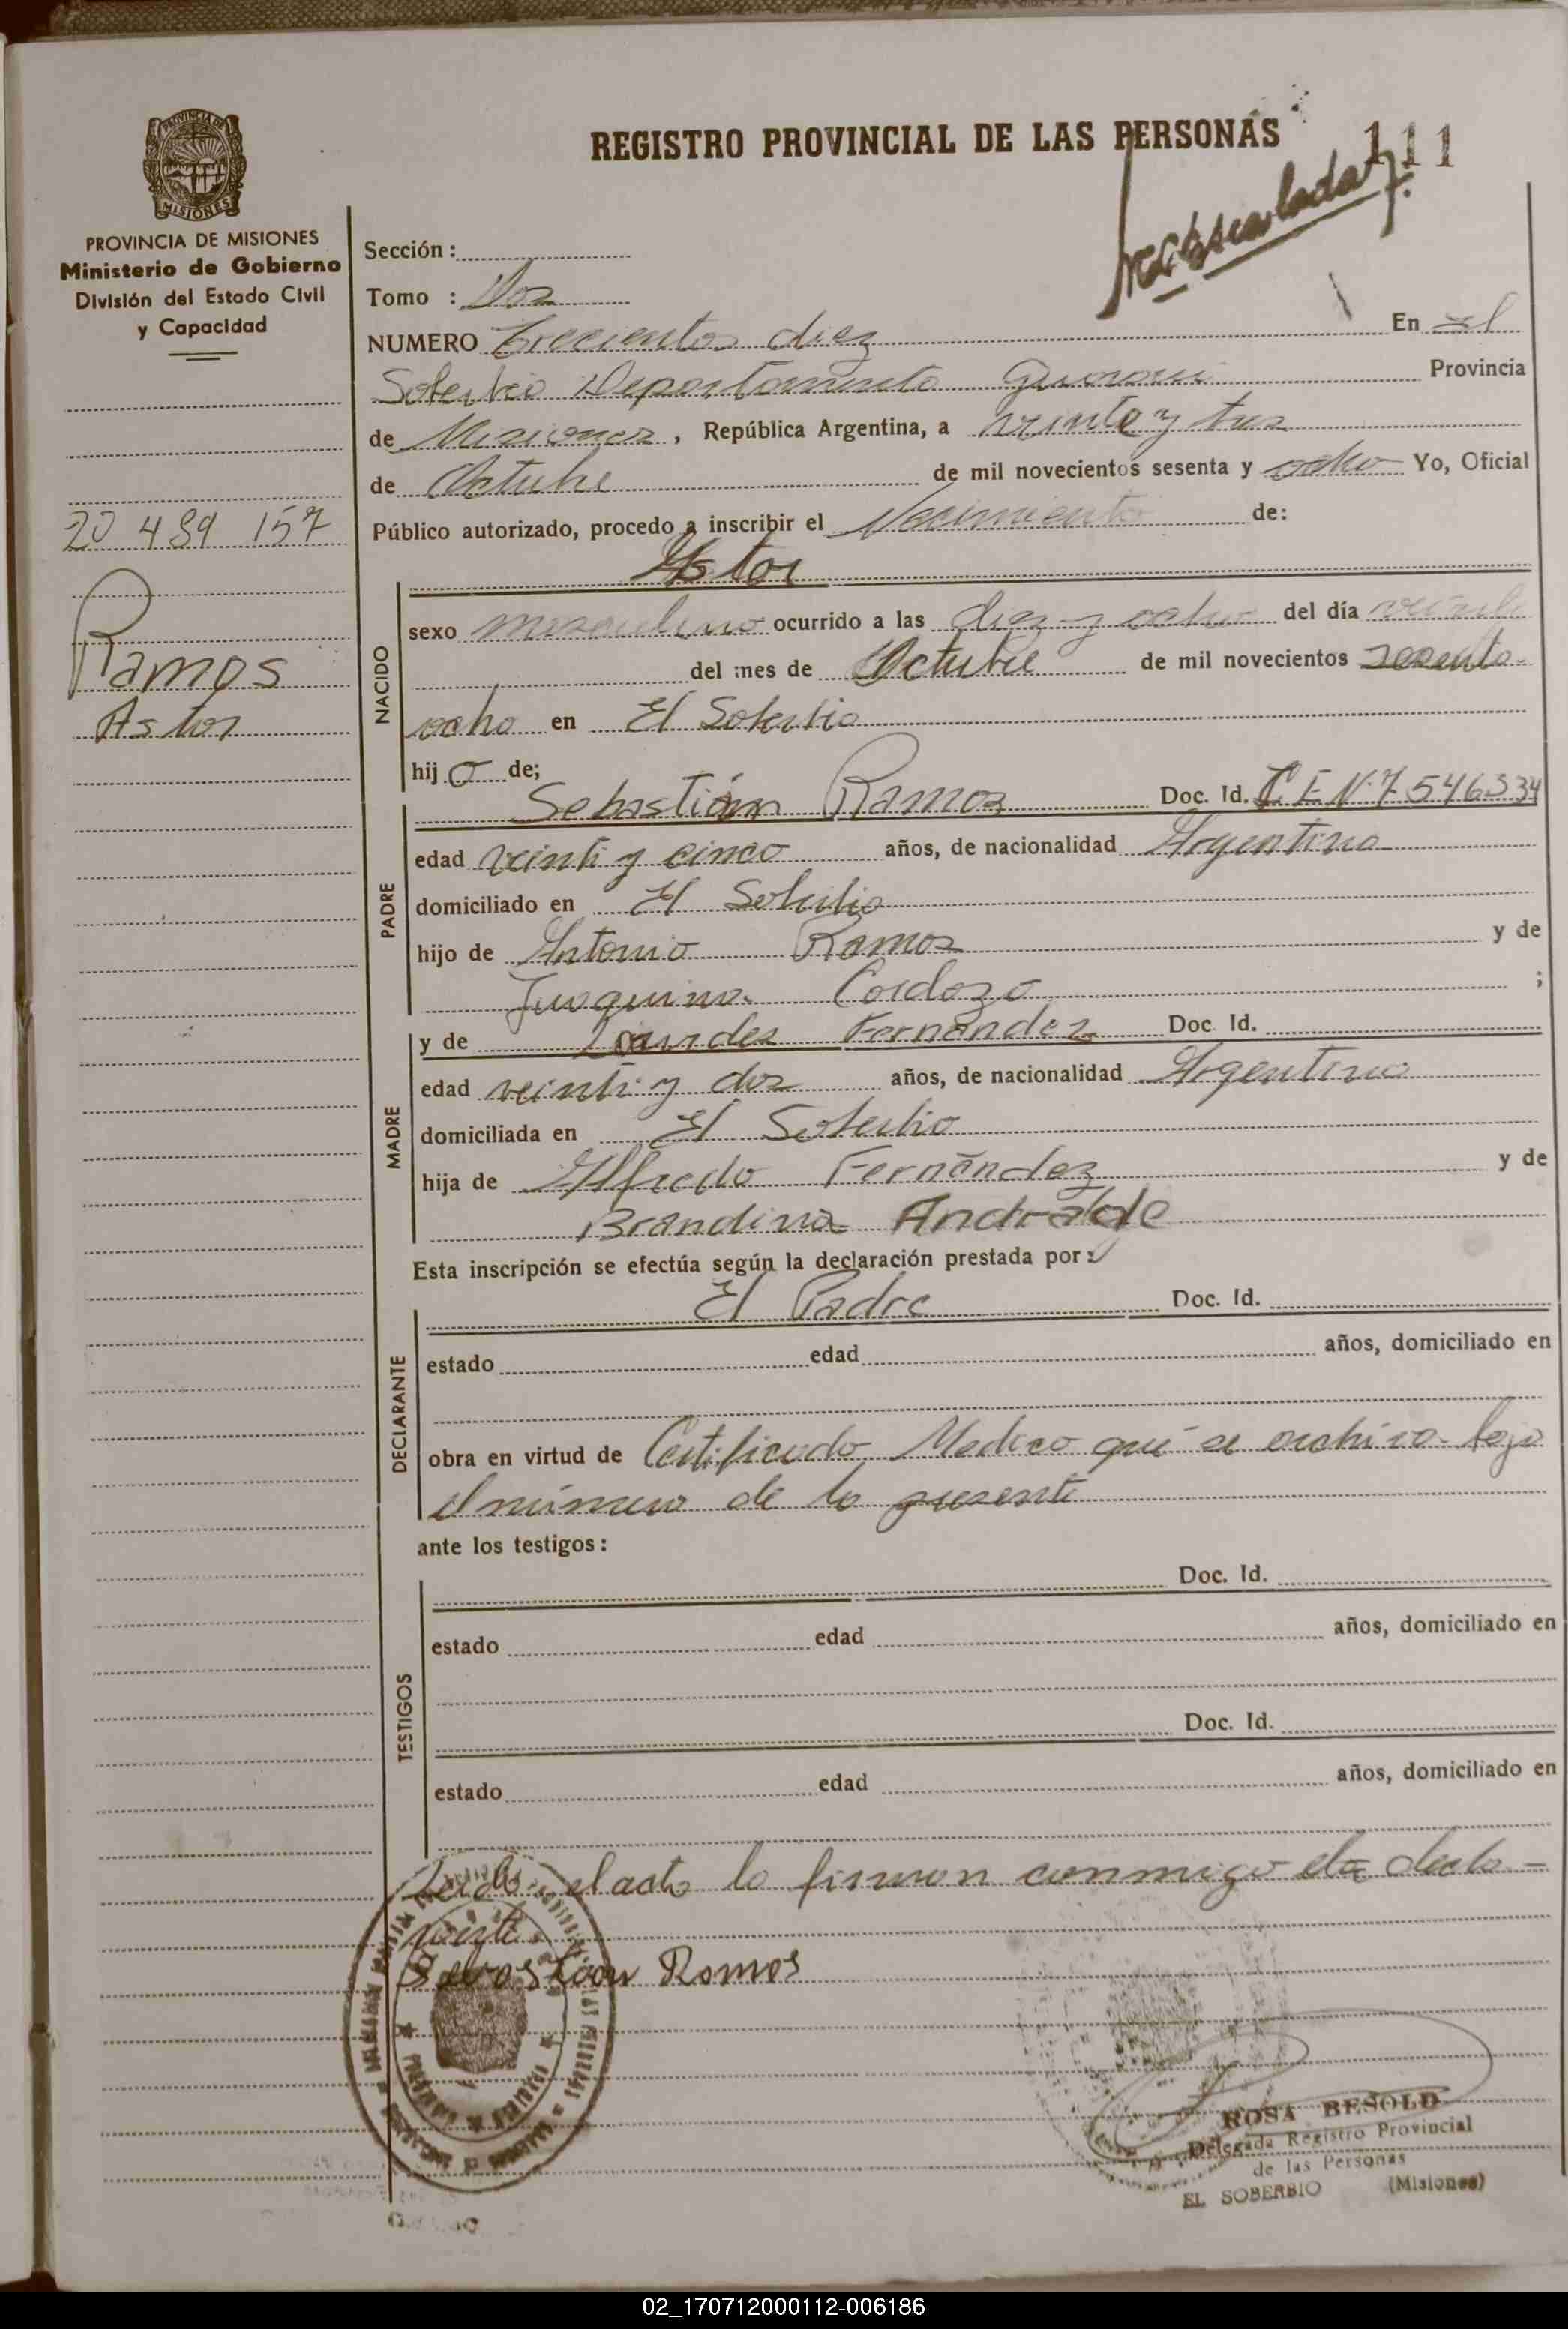 REGISTRO PROVINCIAL DE LAS PERSONAS
111
PROVINCIA DE MISIONES
Ministerio de Gobierno
División del Estado Civil
y Capacidad
Sección :
Tomo : Dos
NUMERO Trecientos diez En El
Soberbio Departamento Guarani Provincia
de Misiones, República Argentina, a veinte y tres
de Octubre de mil novecientos sesenta y ocho Yo, Oficial
Público autorizado, procedo a inscribir el Nacimiento de:
20 489 157
Ramos
Astor
Astor
NACIDO
sexo masculino ocurrido a las diez y ocho del día veinte
del mes de Octubre de mil novecientos sesenta
ocho en El Soberbio
hijo de;
PADRE
Sebastián Ramos Doc. Id. C I N. 7.546334
edad veinti y cinco años, de nacionalidad Argentina
domiciliado en El Soberbio
hijo de Antonio Ramos y de
Juaquina Cordozo ;
MADRE
y de Lourdes Fernández Doc Id.
edad veinti y dos años, de nacionalidad Argentina
domiciliada en El Soberbio
hija de Alfredo Fernández y de
Brandina Andrade
Esta inscripción se efectúa según la declaración prestada por:
DECLARANTE
El Padre Doc. Id.
estado edad años, domiciliado en
obra en virtud de Certificado Medico que se archiva bajo
el número de la presente
ante los testigos:
TESTIGOS
Doc. Id.
estado edad años, domiciliado en
Doc. Id.
estado edad años, domiciliado en
Leido el acto lo firman conmigo el decla-
rante
Sevastian Ramos
ROSA BESOLD
Delegada Registro Provincial
de las Personas
EL SOBERBIO (Misiones)
02_170712000112-006186